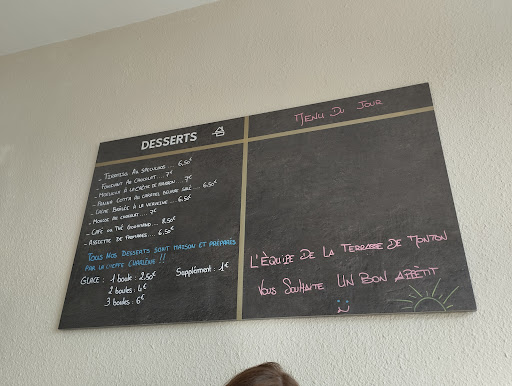 DESSERTS
- Tiramisu Au spéculoos ... 6,50€
- Fondant Au Chocolat ... 7€
- Moelleux À la crème de marron ... 7€
- Panna Cotta au caramel beurre salé ... 6,50€
- Crème Brûlée À la verveine ... 6,50€
- Mousse au chocolat ... 7€
- Café ou Thé Gourmand ... 8,50€
- Assiette de fromages ... 6,50€
Tous Nos Desserts sont maison et préparés
par la cheffe Charlène !!
Glace : 1 boule : 2,50€ Supplément : 1€
2 boules : 4€
3 boules : 6€
Menu Du Jour
L'Équipe De La Terrasse De
Vous Souhaite Un Bon Appétit